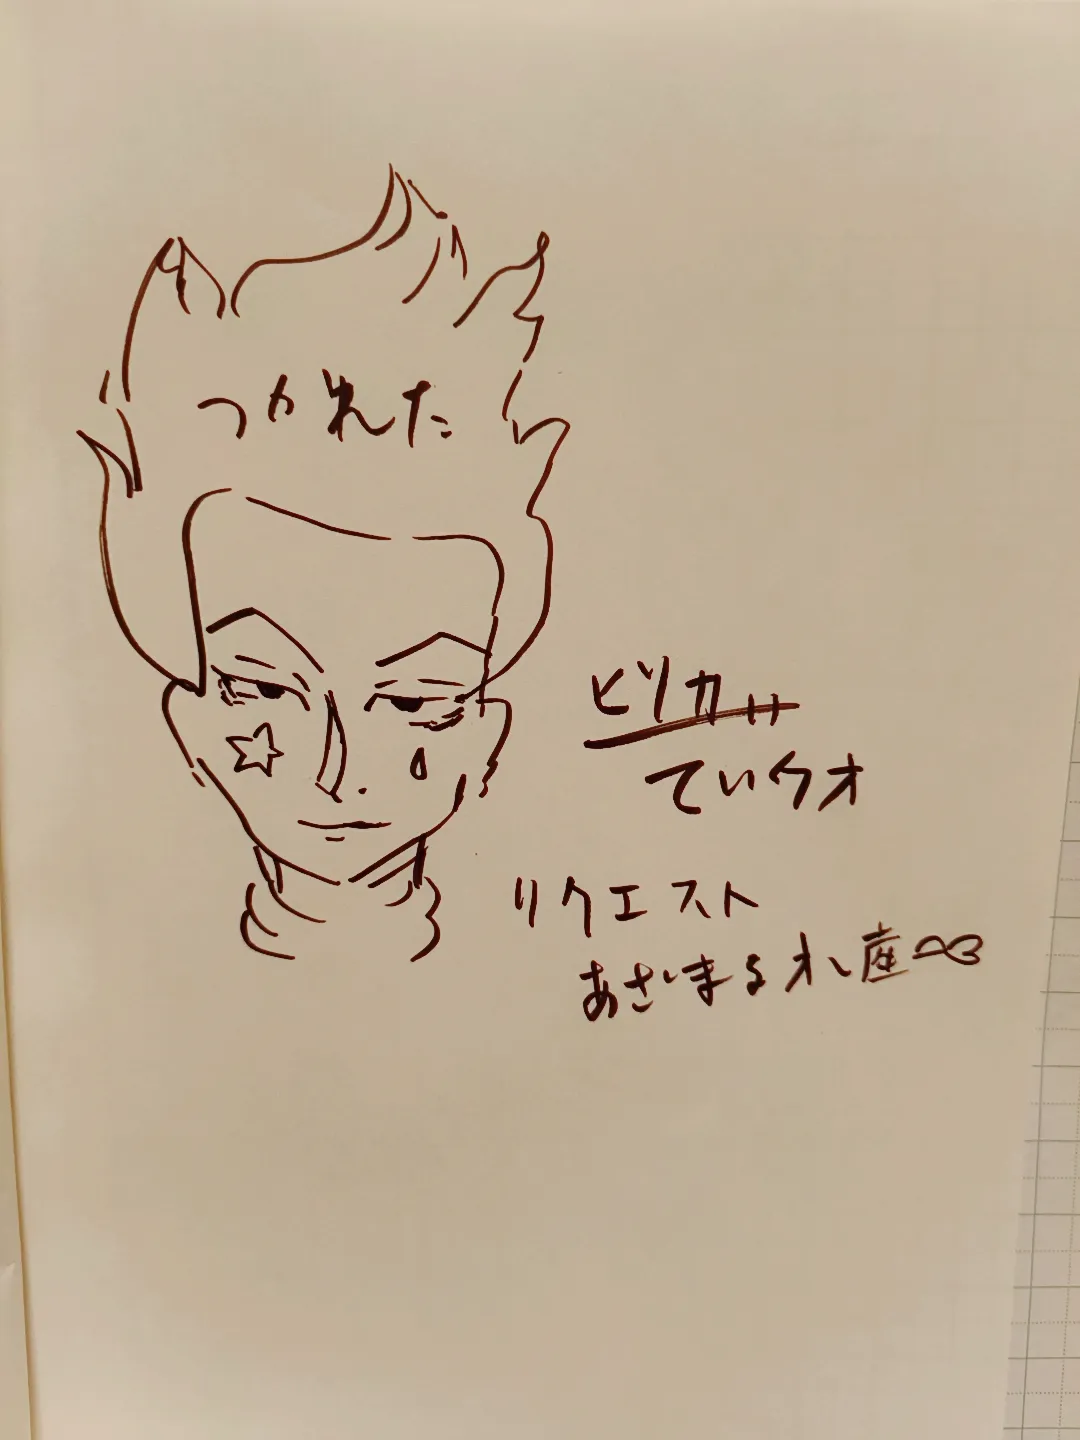 つかれた
ヒソカ
ていクオ
リクエスト
あざまるオ座